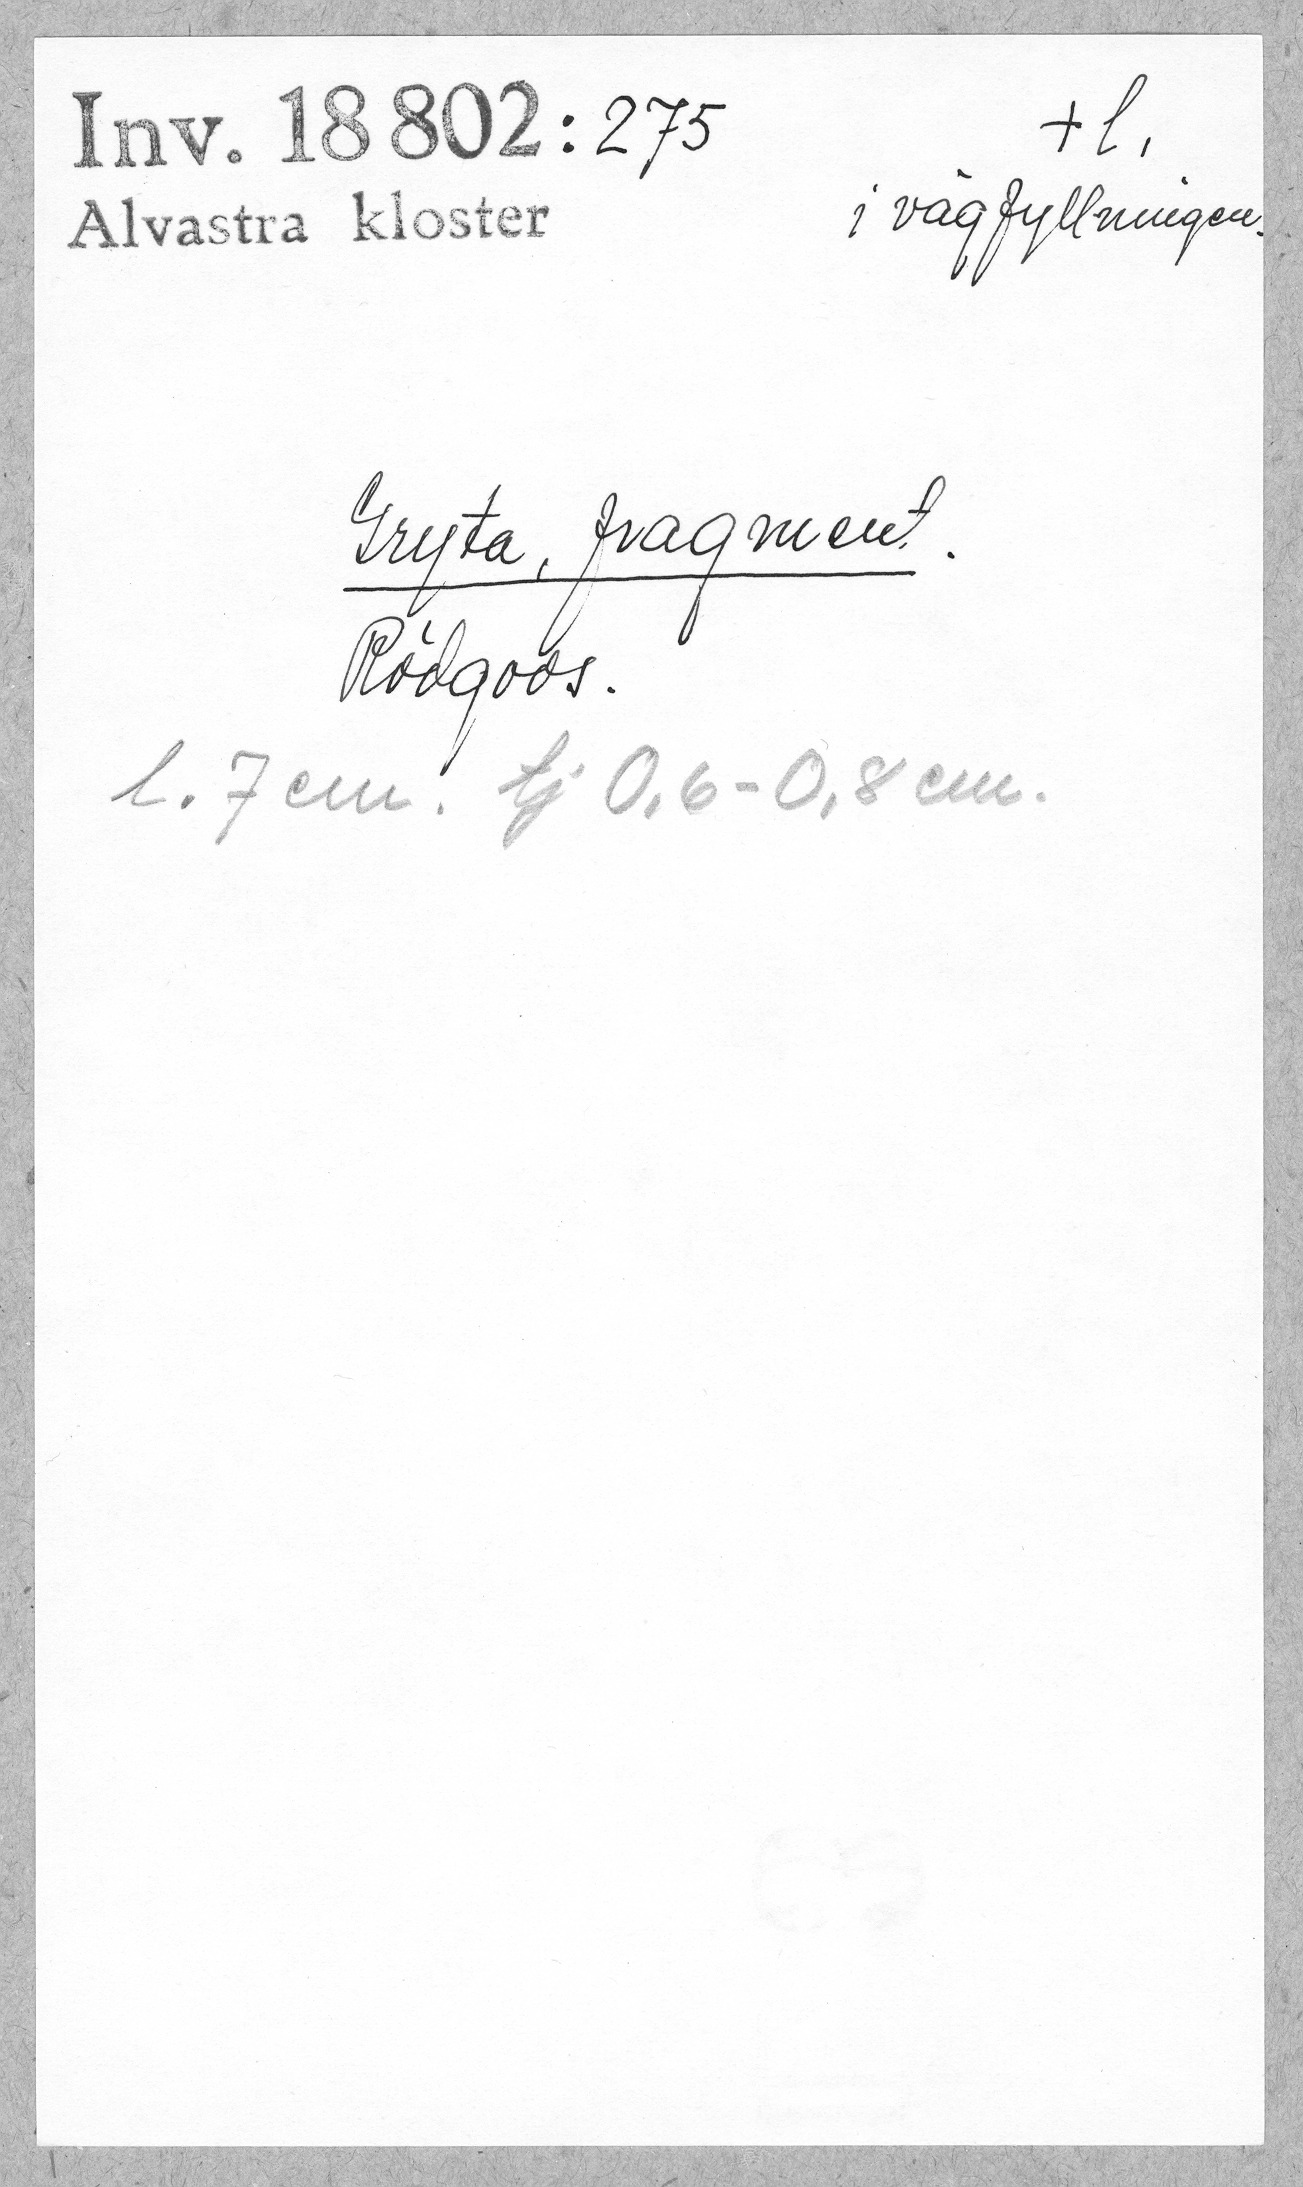 Inv. 18 802:275
Alvastra kloster
+ l,
i vägfyllningen.
Gryta, fragment.
Rödgods.
l. 7 cm. tj 0,6-0,8 cm.